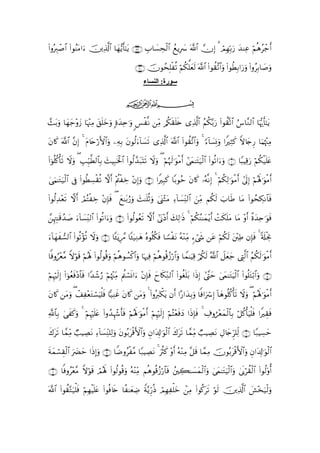 أَجْرُهُمْ عِندَ رَبِّهِمْ ۗ إِنَّ ٱللَّهَ سَرِيعُ ٱلْحِسَابِ ﴿١٩٩﴾ يَٰٓأَيُّهَا ٱلَّذِينَ ءَامَنُوا۟ ٱصْبِرُوا۟
وَصَابِرُوا۟ وَرَابِطُوا۟ وَٱتَّقُوا۟ ٱللَّهَ لَعَلَّكُمْ تُفْلِحُونَ ﴿٢٠٠﴾
سورة: النساء
بِسْمِ ٱللَّهِ ٱلرَّحْمَٰنِ ٱلرَّحِيمِ
يَٰٓأَيُّهَا ٱلنَّاسُ ٱتَّقُوا۟ رَبَّكُمُ ٱلَّذِى خَلَقَكُم مِّن نَّفْسٍ وَٰحِدَةٍ وَخَلَقَ مِنْهَا زَوْجَهَا وَبَثَّ
مِنْهُمَا رِجَالًا كَثِيرًا وَنِسَآءً ۚ وَٱتَّقُوا۟ ٱللَّهَ ٱلَّذِى تَسَآءَلُونَ بِهِۦ وَٱلْأَرْحَامَ ۚ إِنَّ ٱللَّهَ كَانَ
عَلَيْكُمْ رَقِيبًا ﴿١﴾ وَءَاتُوا۟ ٱلْيَتَٰمَىٰٓ أَمْوَٰلَهُمْ ۖ وَلَا تَتَبَدَّلُوا۟ ٱلْخَبِيثَ بِٱلطَّيِّبِ ۖ وَلَا تَأْكُلُوٓا۟
أَمْوَٰلَهُمْ إِلَىٰٓ أَمْوَٰلِكُمْ ۚ إِنَّهُۥ كَانَ حُوبًا كَبِيرًا ﴿٢﴾ وَإِنْ خِفْتُمْ أَلَّا تُقْسِطُوا۟ فِى ٱلْيَتَٰمَىٰ
فَٱنكِحُوا۟ مَا طَابَ لَكُم مِّنَ ٱلنِّسَآءِ مَثْنَىٰ وَثُلَٰثَ وَرُبَٰعَ ۖ فَإِنْ خِفْتُمْ أَلَّا تَعْدِلُوا۟
فَوَٰحِدَةً أَوْ مَا مَلَكَتْ أَيْمَٰنُكُمْ ۚ ذَٰلِكَ أَدْنَىٰٓ أَلَّا تَعُولُوا۟ ﴿٣﴾ وَءَاتُوا۟ ٱلنِّسَآءَ صَدُقَٰتِهِنَّ
نِحْلَةً ۚ فَإِن طِبْنَ لَكُمْ عَن شَىْءٍ مِّنْهُ نَفْسًا فَكُلُوهُ هَنِيٓـًٔا مَّرِيٓـًٔا ﴿٤﴾ وَلَا تُؤْتُوا۟ ٱلسُّفَهَآءَ
أَمْوَٰلَكُمُ ٱلَّتِى جَعَلَ ٱللَّهُ لَكُمْ قِيَٰمًا وَٱرْزُقُوهُمْ فِيهَا وَٱكْسُوهُمْ وَقُولُوا۟ لَهُمْ قَوْلًا مَّعْرُوفًا
﴿٥﴾ وَٱبْتَلُوا۟ ٱلْيَتَٰمَىٰ حَتَّىٰٓ إِذَا بَلَغُوا۟ ٱلنِّكَاحَ فَإِنْ ءَانَسْتُم مِّنْهُمْ رُشْدًا فَٱدْفَعُوٓا۟ إِلَيْهِمْ
أَمْوَٰلَهُمْ ۖ وَلَا تَأْكُلُوهَآ إِسْرَافًا وَبِدَارًا أَن يَكْبَرُوا۟ ۚ وَمَن كَانَ غَنِيًّا فَلْيَسْتَعْفِفْ ۖ وَمَن كَانَ
فَقِيرًا فَلْيَأْكُلْ بِٱلْمَعْرُوفِ ۚ فَإِذَا دَفَعْتُمْ إِلَيْهِمْ أَمْوَٰلَهُمْ فَأَشْهِدُوا۟ عَلَيْهِمْ ۚ وَكَفَىٰ بِٱللَّهِ
حَسِيبًا ﴿٦﴾ لِّلرِّجَالِ نَصِيبٌ مِّمَّا تَرَكَ ٱلْوَٰلِدَانِ وَٱلْأَقْرَبُونَ وَلِلنِّسَآءِ نَصِيبٌ مِّمَّا تَرَكَ
ٱلْوَٰلِدَانِ وَٱلْأَقْرَبُونَ مِمَّا قَلَّ مِنْهُ أَوْ كَثُرَ ۚ نَصِيبًا مَّفْرُوضًا ﴿٧﴾ وَإِذَا حَضَرَ ٱلْقِسْمَةَ
أُو۟لُوا۟ ٱلْقُرْبَىٰ وَٱلْيَتَٰمَىٰ وَٱلْمَسَٰكِينُ فَٱرْزُقُوهُم مِّنْهُ وَقُولُوا۟ لَهُمْ قَوْلًا مَّعْرُوفًا ﴿٨﴾
وَلْيَخْشَ ٱلَّذِينَ لَوْ تَرَكُوا۟ مِنْ خَلْفِهِمْ ذُرِّيَّةً ضِعَٰفًا خَافُوا۟ عَلَيْهِمْ فَلْيَتَّقُوا۟ ٱللَّهَ